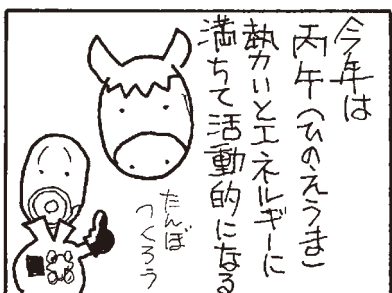 今年は
丙午(ひのえうま)
熱いとエネルギーに
満ちて活動的になる
たんぼ
つくろう